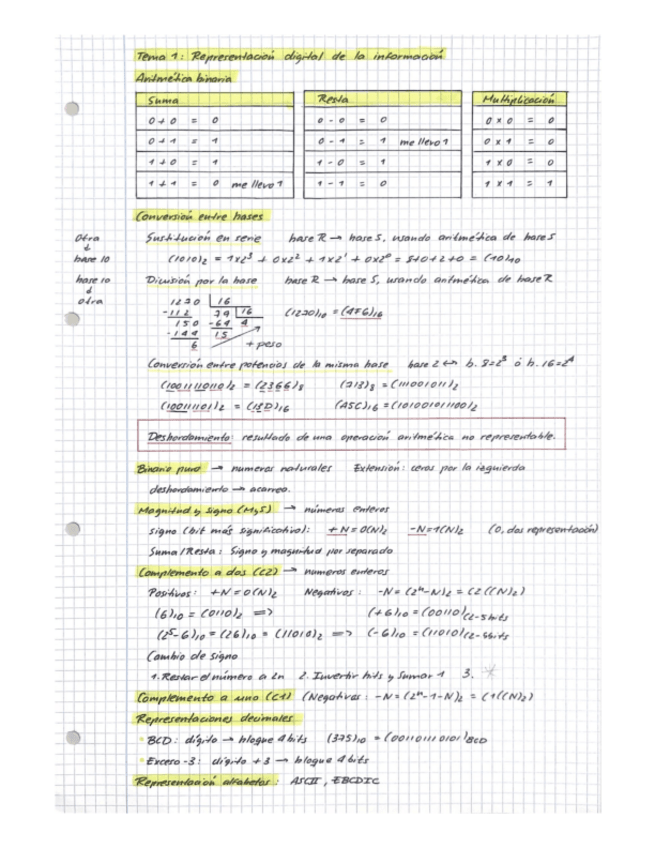 Tema 1: Representación digital de la información
Aritmética binaria
Suma
0 + 0 = 0
0 + 1 = 1
1 + 0 = 1
1 + 1 = 0 me llevo 1
Resta
0 - 0 = 0
0 - 1 = 1 me llevo 1
1 - 0 = 1
1 - 1 = 0
Multiplicación
0 x 0 = 0
0 x 1 = 0
1 x 0 = 0
1 x 1 = 1
Conversión entre bases
Otra ↓ base 10
Sustitución en serie base R → base S, usando aritmética de base S
(1010)₂ = 1x2³ + 0x2² + 1x2¹ + 0x2⁰ = 8+0+2+0 = (10)₁₀
base 10 ↓ otra
División por la base base R → base S, usando aritmética de base R
1230 16
-112 79 16
150 -64 4
-144 15
6 + peso
(1230)₁₀ = (4F6)₁₆
Conversión entre potencias de la misma base base 2 ↔ b. 8=2³ ó b. 16=2⁴
(10011110110)₂ = (2366)₈ (713)₈ = (111001011)₂
(100111101)₂ = (13D)₁₆ (A5C)₁₆ = (101001011100)₂
Desbordamiento: resultado de una operación aritmética no representable.
Binario puro → numeros naturales Extensión: ceros por la izquierda
desbordamiento → acarreo.
Magnitud y signo (MyS) → números enteros
signo (bit más significativo): +N=0(N)₂ -N=1(N)₂ (0, dos representación)
Suma/Resta: Signo y magnitud por separado
Complemento a dos (C2) → numeros enteros
Positivos: +N=0(N)₂ Negativos: -N=(2ⁿ-N)₂ = C2((N)₂)
(6)₁₀ = (0110)₂ => (+6)₁₀ = (00110)C2-5bits
(2⁵-6)₁₀ = (26)₁₀ = (11010)₂ => (-6)₁₀ = (11010)C2-5bits
Cambio de signo
1. Restar el número a 2n 2. Invertir bits y sumar 1 3.
Complemento a uno (C1) (Negativas: -N=(2ⁿ-1-N)₂ = C1((N)₂)
Representaciones decimales
• BCD: dígito → bloque 4 bits (375)₁₀ = (001101110101)BCD
• Exceso-3: dígito +3 → bloque 4 bits
Representación alfabetos: ASCII, EBCDIC